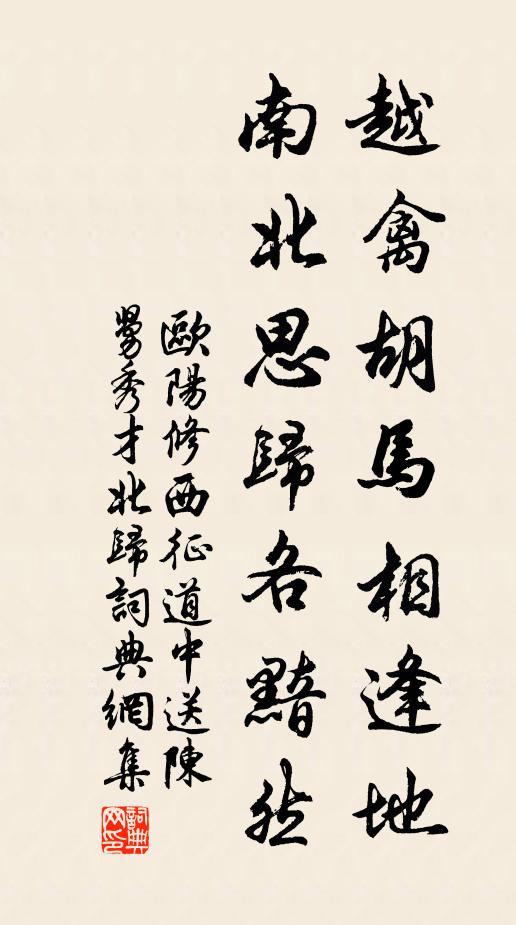 越禽胡馬相逢地
南北思歸各黯然
歐陽修西征道中送陳
舅秀才北歸詞典網集
詞典
网印